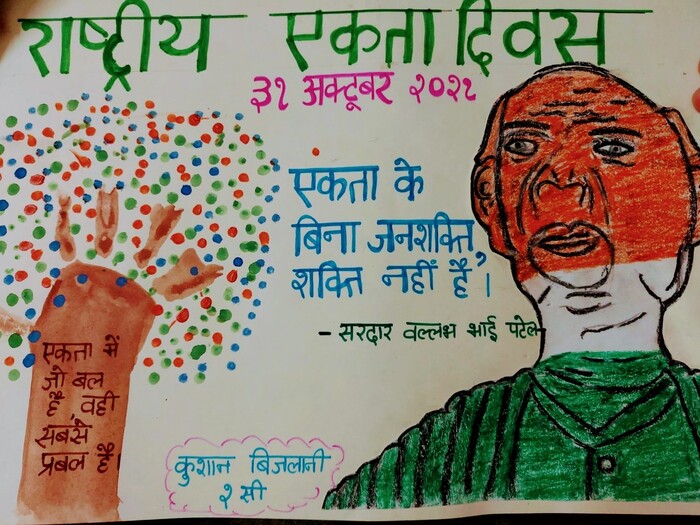 राष्ट्रीय एकता दिवस
३१ अक्टूबर २०२१
एकता के
बिना जनशक्ति,
शक्ति नहीं है।
- सरदार वल्लभ भाई पटेल
एकता में
जो बल
है, वही
सबसे
प्रबल है।
कुशान बिजलानी
२ सी